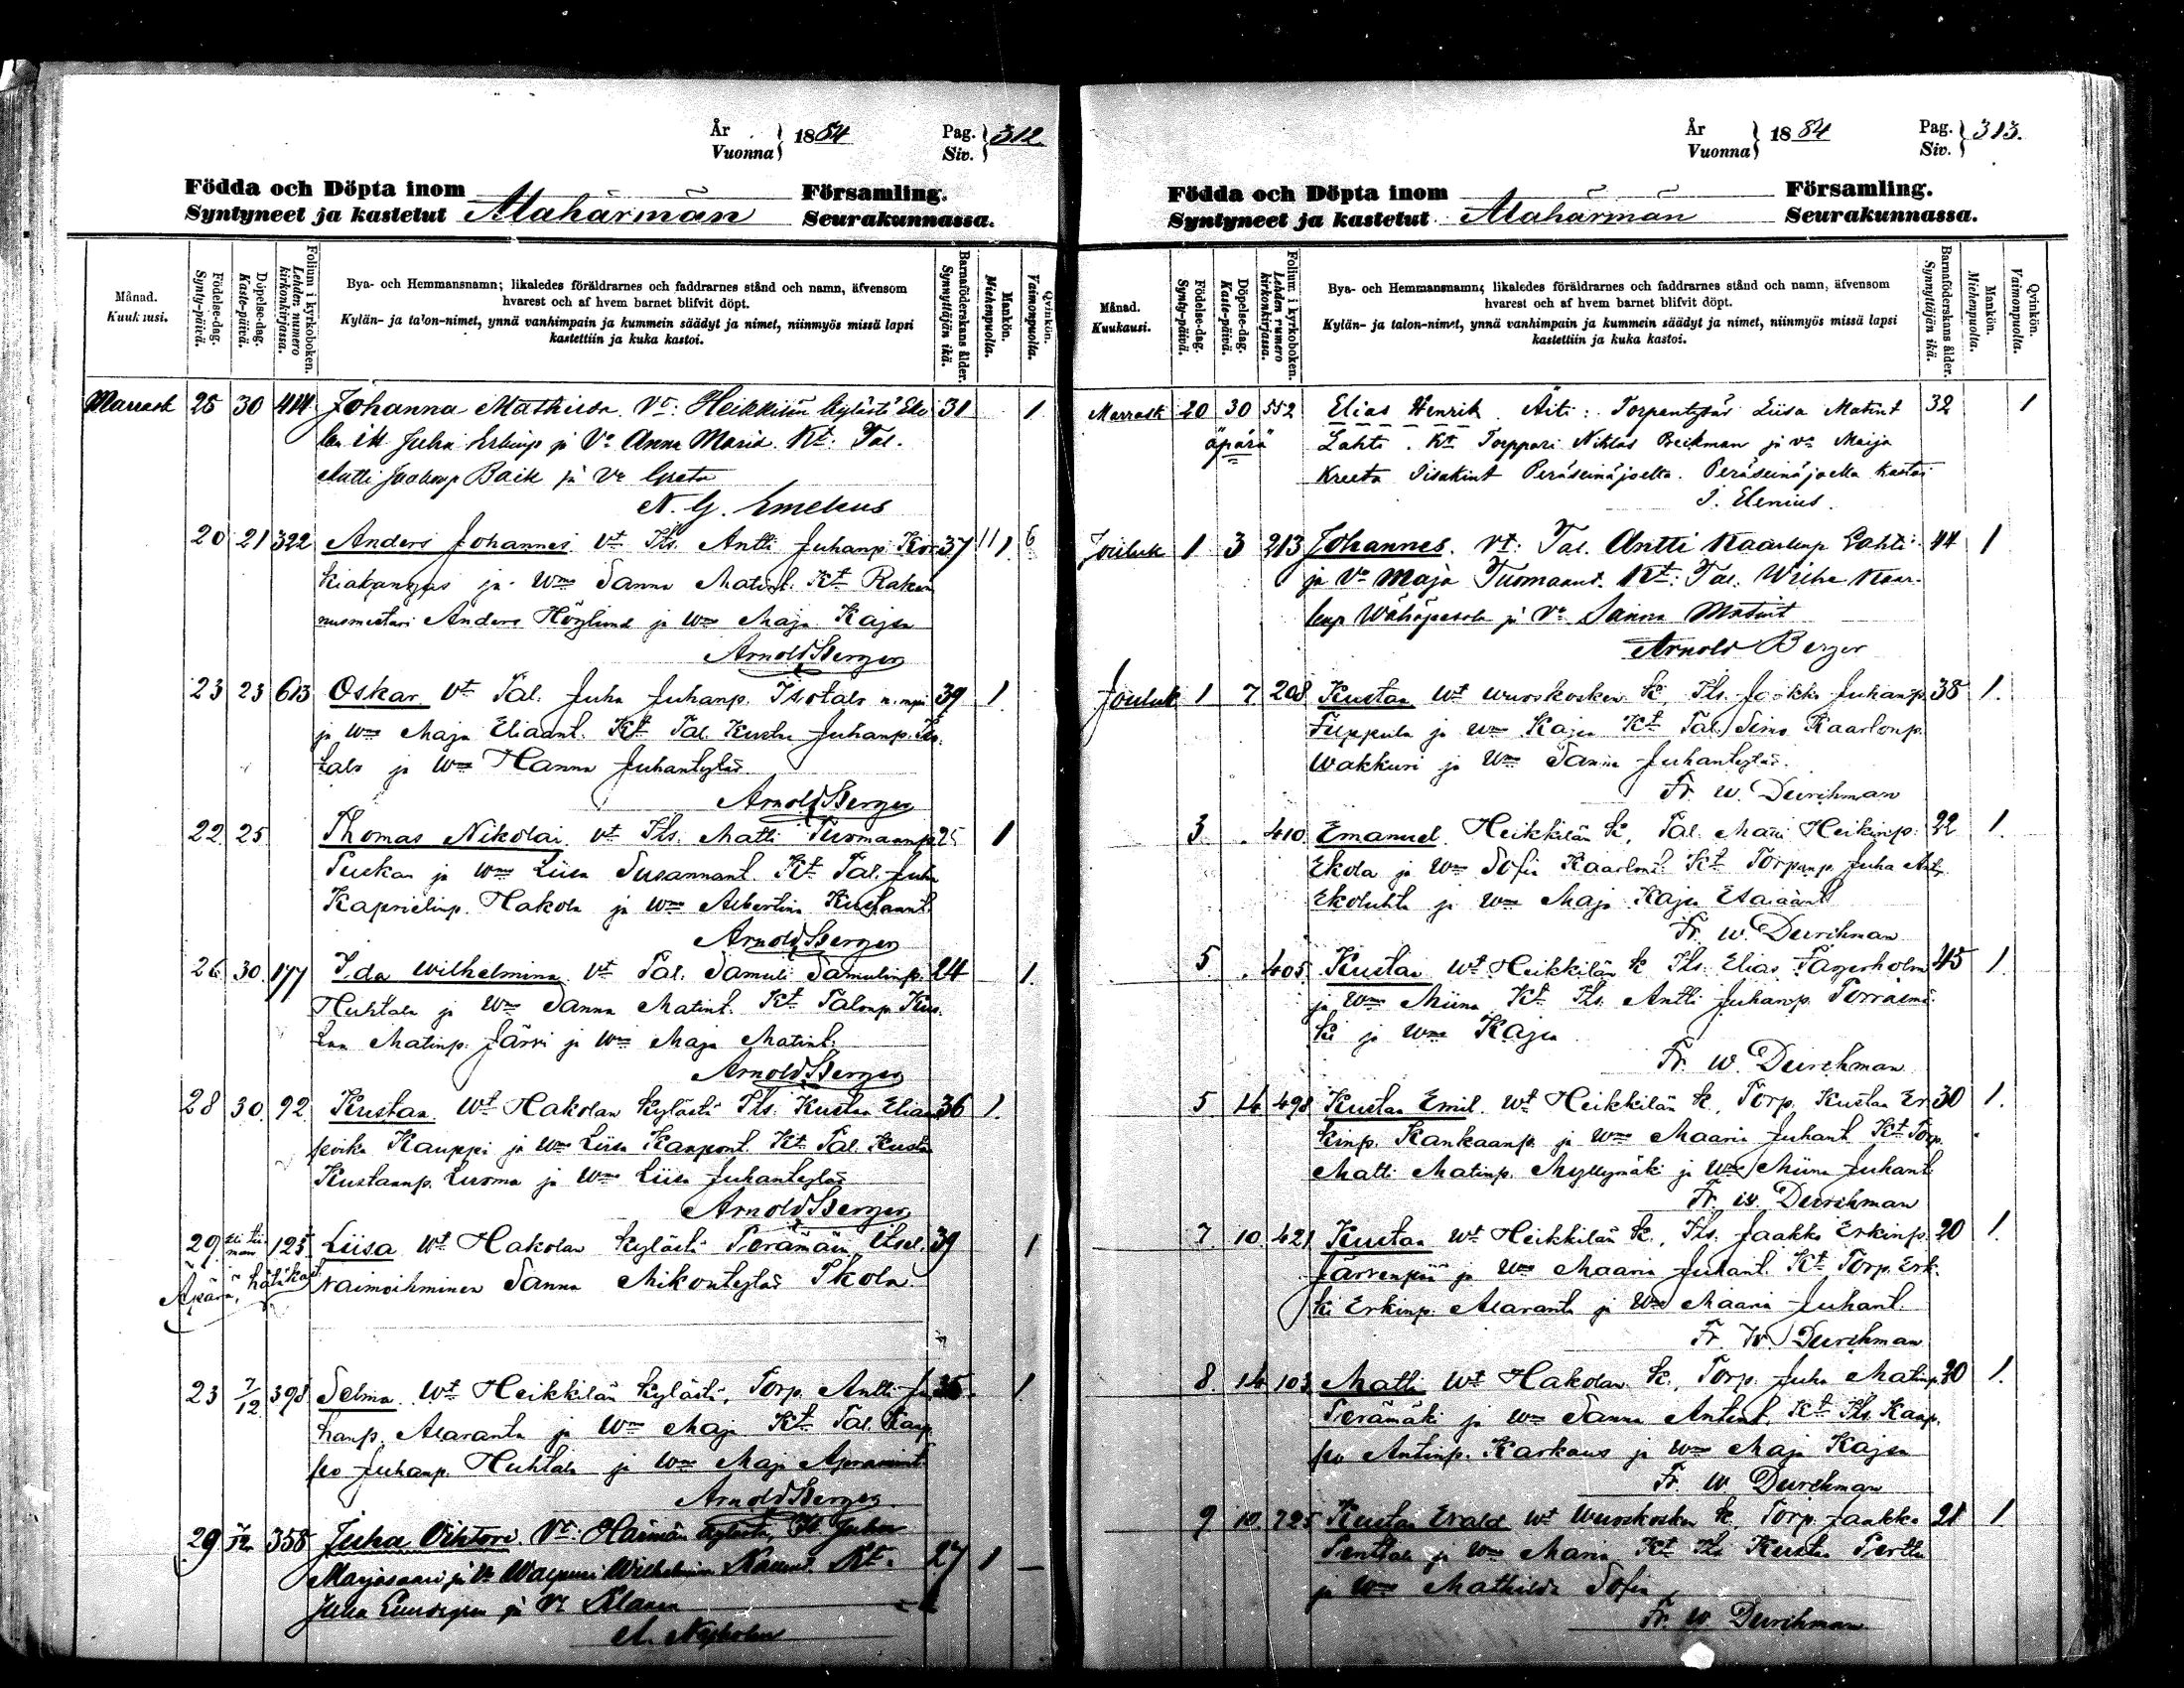 År
Vuonna } 1884
Pag.
Siv. } 312.
Födda och Döpta inom
Syntyneet ja kastetut Alahärmän Församling.
Seurakunnassa.
Månad.
Kuukausi.
Födelse-dag.
Synty-päivä.
Döpelse-dag.
Kaste-päivä.
Folium i kyrkoboken.
Lehden numero
kirkonkirjassa.
Bya- och Hemmansnamn; likaledes föräldrarnes och faddrarnes stånd och namn, äfvensom
hvarest och af hvem barnet blifvit döpt.
Kylän- ja talon-nimet, ynnä vanhimpain ja kummein säädyt ja nimet, niinmyös missä lapsi
kastettiin ja kuka kastoi.
Barnaföderskans ålder.
Synnyttäjän ikä.
Mankön.
Miehenpuolta.
Qvinkön.
Vaimonpuolta.
Marrask 25 30 414 Johanna Mathilda. Vt: Heikkilän kylästä Eko 31 1
lan it Juha Erkinp ja Vo Anna Maria. Kt: Tal.
Antti Jaakonp Baik ja Vo Greta
N. G. Emeleus
20 21 322 Anders Johannes Vt Its. Antti Juhanp. Kor 37 1
kiakangas ja Wmo Sanna Matint. Kt Raken
nusmestari Anders Höglund ja Wmo Maja Kajsa
Arnold Berger
23 23 613 Oskar Vt Tal. Juha Juhanp. Isotalo n. mpi 39 1.
ja Wmo Maja Eliaant. Kt Tal Kusta Juhanp. Iso
talo ja Wmo Hanna Juhantytär
Arnold Berger
22 25 Thomas Nikolai Vt Its. Matti Tuomaanp 25 1
Tuokan ja Wmo Liisa Susannant. Kt Tal. Juha
Kaprielinp. Hakola ja Wmo Albertina Kustaant.
Arnold Berger
26 30. 177 Ida Wilhelmina Vt Tal. Samuli Samulinp. 24 1.
Huhtala ja Wmo Sanna Matint. Kt Talonp Kus.
taa Matinp. Järvi ja Wmo Maja Matint.
Arnold Berger
28 30. 92 Kustaa Wt Hakolan kylästä Its. Kustaa Elian 36 1.
poika Kauppi ja Wmo Liisa Kaapont. Kt Tal. Kusta
Kustaanp. Luoma ja Wmo Liisa Juhantytär
Arnold Berger
29. 125 Liisa Wt Hakolan kylästä Perämäen Itsel. 39 1
Äpärä, hätäkast. Naimoihminen Sanna Mikontytär Ikola
23 7/12 398 Selma Wt Heikkilän kylästä, Torp. Antti Ju 35 1.
hanp. Alaranta ja Wmo Maja Kt Tal. Kaap
po Juhanp. Huhtala ja Wmo Maja
Arnold Berger
29 358 Juha Viktori. Vt: Härmän kylästä, Juha 27 1 —
Marjasaari ja Vo Walpuri Wilhelmina Kt.
Juha ja Vo Klaara
A. Nyholm
År
Vuonna } 1884
Pag.
Siv. } 313.
Födda och Döpta inom
Syntyneet ja kastetut Alahärmän Församling.
Seurakunnassa.
Månad.
Kuukausi.
Födelse-dag.
Synty-päivä.
Döpelse-dag.
Kaste-päivä.
Folium i kyrkoboken.
Lehden numero
kirkonkirjassa.
Bya- och Hemmansnamn; likaledes föräldrarnes och faddrarnes stånd och namn, äfvensom
hvarest och af hvem barnet blifvit döpt.
Kylän- ja talon-nimet, ynnä vanhimpain ja kummein säädyt ja nimet, niinmyös missä lapsi
kastettiin ja kuka kastoi.
Barnaföderskans ålder.
Synnyttäjän ikä.
Mankön.
Miehenpuolta.
Qvinkön.
Vaimonpuolta.
Marrask 20 30 552 Elias Henrik. Äiti: Torpantytär Liisa Matint 32 1
äpärä Lahti. Kt Torppari Niklas Breikman ja vo Maija
Kreeta Iisakint Peräseinäjoelta. Peräseinäjoella kastoi
I. Elenius.
Jouluk 1 3 213 Johannes. Vt: Tal. Antti Kaarlenp Lahti 44 1
ja Vo Maja Tuomaant. Kt: Tal. Wilhe Kaar-
lenp Wähäpesola ja Vo Sanna Matint
Arnold Berger
Jouluk 1 7 208 Kustaa Wt Wuoskosken k, Its. Jaakko Juhanp. 38 1.
Filppula ja Wmo Kajsa Kt Tal. Simo Kaarlonp.
Wakkuri ja Wmo Sanna Juhantytär.
Fr. W. Durchman
3. . 410. Emanuel. Heikkilän k, Tal. Matti Heikinp. 22 1.
Ekola ja Wmo Sofia Kaarlont. Kt Torpanp. Juha Ant.
Ekoluhta ja Wmo Maja Kajsa Esaiaant
Fr. W. Durchman
5. . 405. Kustaa Wt Heikkilän k Its. Elias Fagerholm 45 1.
ja Wmo Miina Kt Its. Antti Juhanp. Porrasmä-
ki ja Wmo Kajsa
Fr. W. Durchman
5 14 498 Kustaa Emil. Wt Heikkilän k, Torp. Kustaa Er 30 1.
kinp. Kankaanp. ja Wmo Maaria Juhant Kt Torp.
Matti Matinp. Myllymäki ja Wmo Miina Juhant
Fr. W. Durchman
7. 10. 421 Kustaa Wt Heikkilän k., Its. Jaakko Erkinp. 20 1.
Järvenpää ja Wmo Maaria Juhant. Kt Torp. Erk-
ki Erkinp. Alaranta ja Wmo Maaria Juhant.
Fr. W. Durchman
8. 14 103 Matti Wt Hakolan k., Torp. Juha Matinp. 30 1.
Perämäki ja Wmo Sanna Antint. Kt Its. Kaap.
po Antinp. Karkaus ja Wmo Maja Kajsa
Fr. W. Durchman
9 10. 725 Kustaa Evald Wt Wuoskosken k. Torp. Jaakko 21 1.
Penttala ja Wmo Maria Kt Its Kusta Perttu
ja Wmo Mathilda Sofia
Fr. W. Durchman